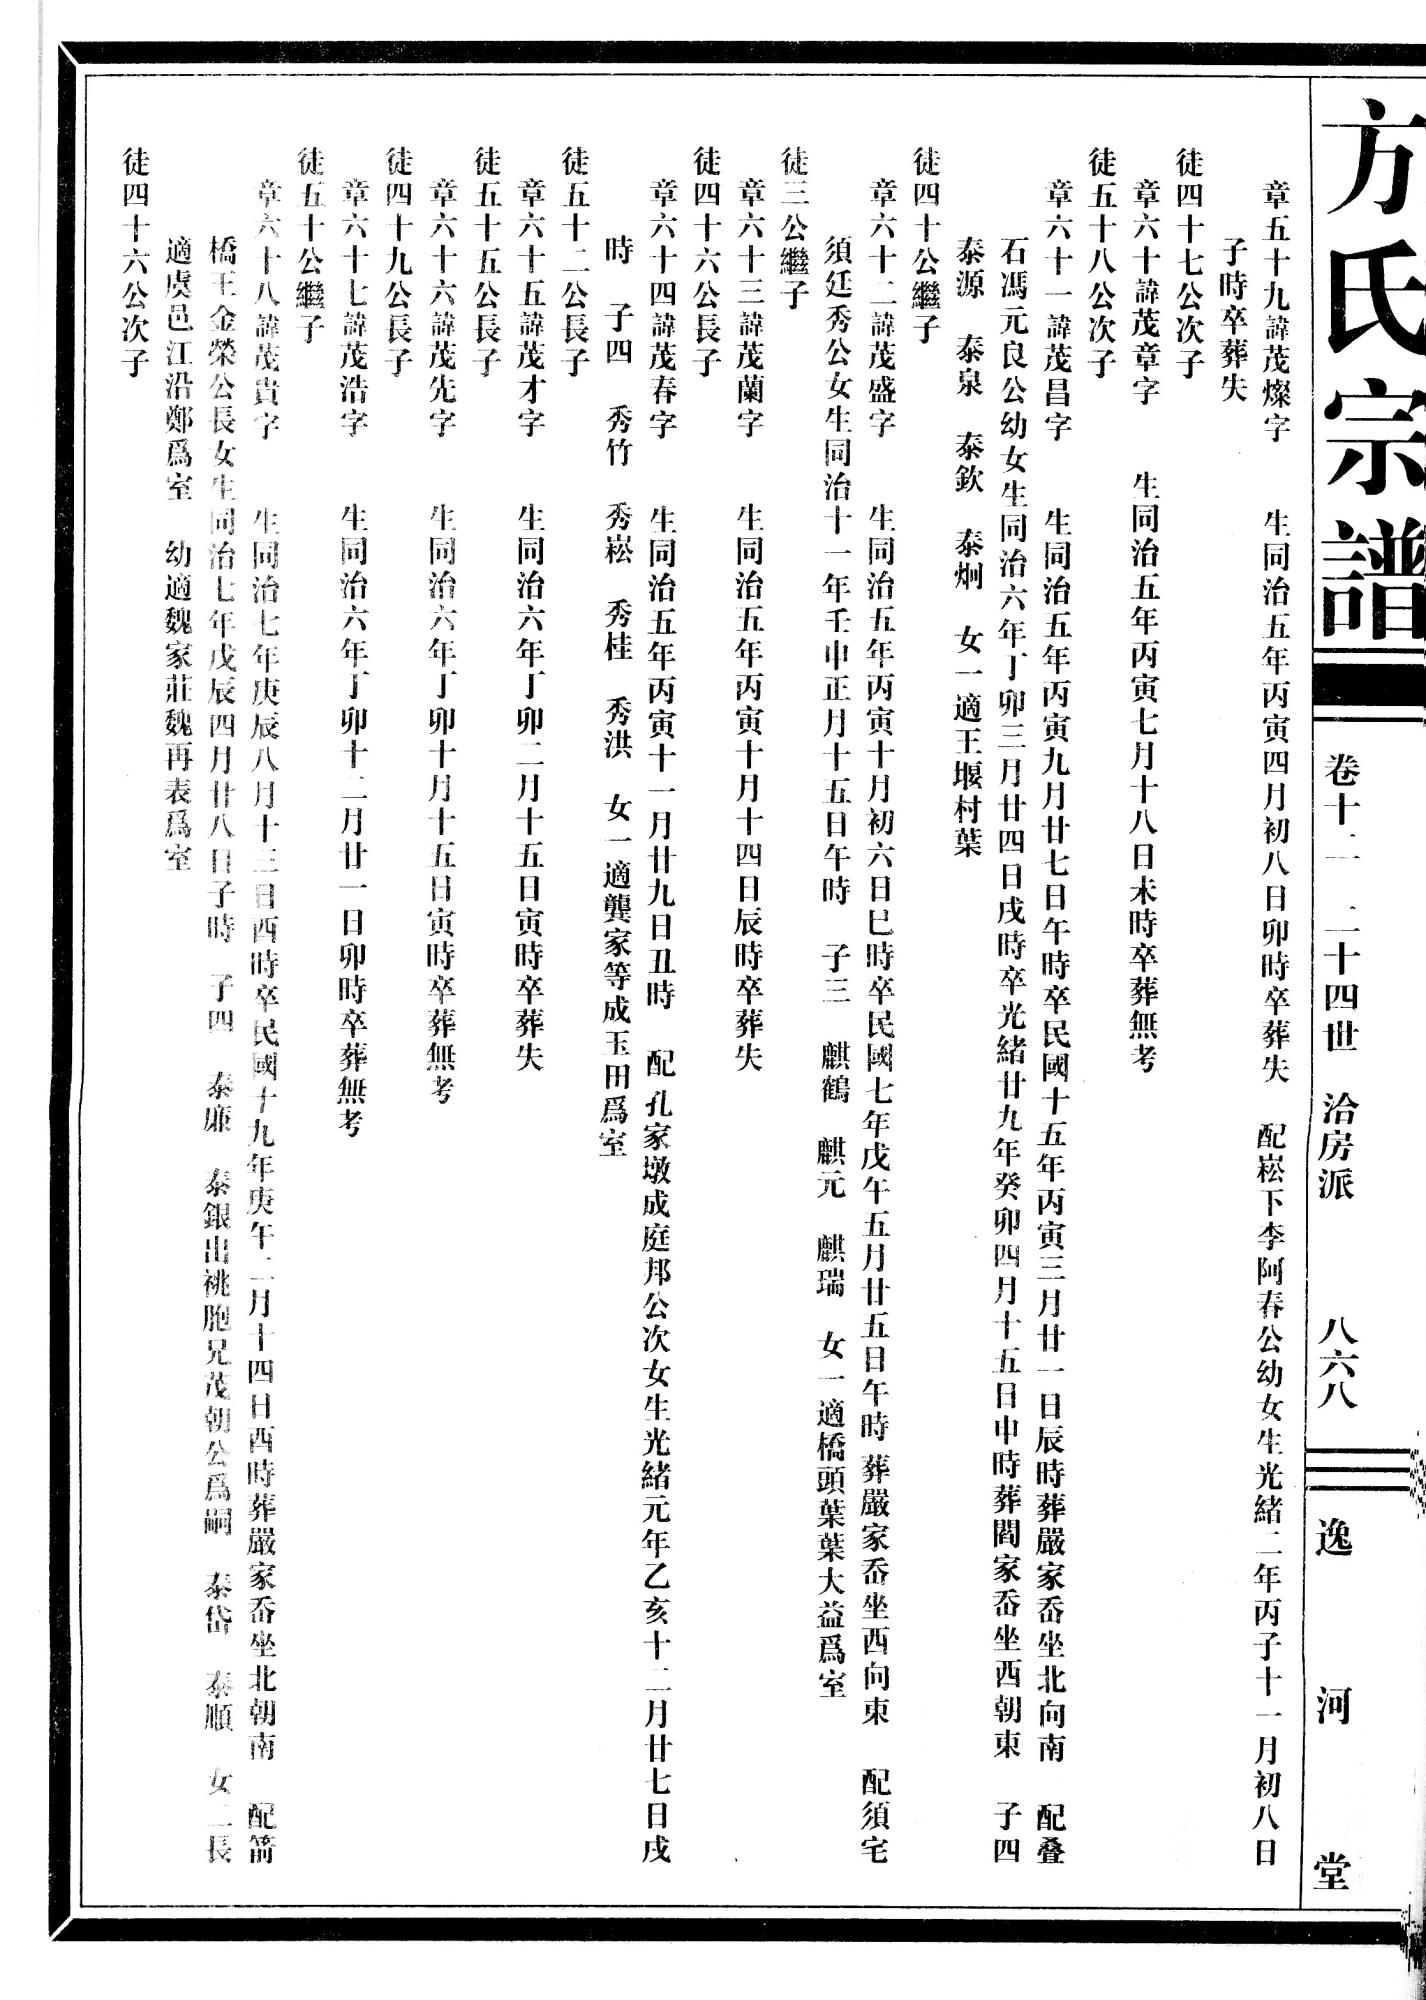 方氏宗譜
卷十一 二十四世 洽房派 八六八
逸河堂
章五十九諱茂燦字 生同治五年丙寅四月初八日卯時卒葬失 配崧下李阿春公幼女生光緒二年丙子十一月初八日
子時卒葬失
徒四十七公次子
章六十諱茂章字 生同治五年丙寅七月十八日未時卒葬無考
徒五十八公次子
章六十一諱茂昌字 生同治五年丙寅九月廿七日午時卒民國十五年丙寅三月廿一日辰時葬嚴家岙坐北向南 配叠
石馮元良公幼女生同治六年丁卯三月廿四日戌時卒光緒廿九年癸卯四月十五日申時葬閻家岙坐西朝東 子四
泰源 泰泉 泰欽 泰炯 女一適王堰村葉
徒四十公繼子
章六十二諱茂盛字 生同治五年丙寅十月初六日巳時卒民國七年戊午五月廿五日午時葬嚴家岙坐西向東 配須宅
須廷秀公女生同治十一年壬申正月十五日午時 子三 麒鶴 麒元 麒瑞 女一適橋頭葉葉大益爲室
徒三公繼子
章六十三諱茂蘭字 生同治五年丙寅十月十四日辰時卒葬失
徒四十六公長子
章六十四諱茂春字 生同治五年丙寅十一月廿九日丑時 配孔家墩成庭邦公次女生光緒元年乙亥十二月廿七日戌
時 子四 秀竹 秀崧 秀桂 秀洪 女一適龔家等成玉田爲室
徒五十二公長子
章六十五諱茂才字 生同治六年丁卯二月十五日寅時卒葬失
徒五十五公長子
章六十六諱茂先字 生同治六年丁卯十月十五日寅時卒葬無考
徒四十九公長子
章六十七諱茂浩字 生同治六年丁卯十二月廿一日卯時卒葬無考
徒五十公繼子
章六十八諱茂貴字 生同治七年庚辰八月十三日酉時卒民國十九年庚午二月十四日酉時葬嚴家岙坐北朝南 配箭
橋王金榮公長女生同治七年戊辰四月廿八日子時 子四 泰廉 泰銀出祧胞兄茂朝公爲嗣 泰岱 泰順 女二長
適虞邑江沿鄭爲室 幼適魏家莊魏再表爲室
徒四十六公次子